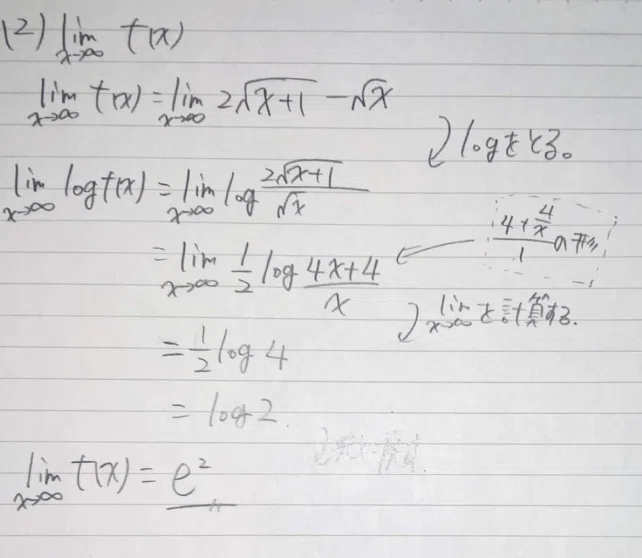 (2) lim x→∞ f(x)
lim x→∞ f(x) = lim x→∞ 2√x+1 - √x
logをとる。
lim x→∞ log f(x) = lim x→∞ log 2√x+1 / √x
= lim x→∞ 1/2 log 4x+4 / x
4+4/x / 1 の形
lim x→∞ を計算する.
= 1/2 log 4
= log 2
lim x→∞ f(x) = e²